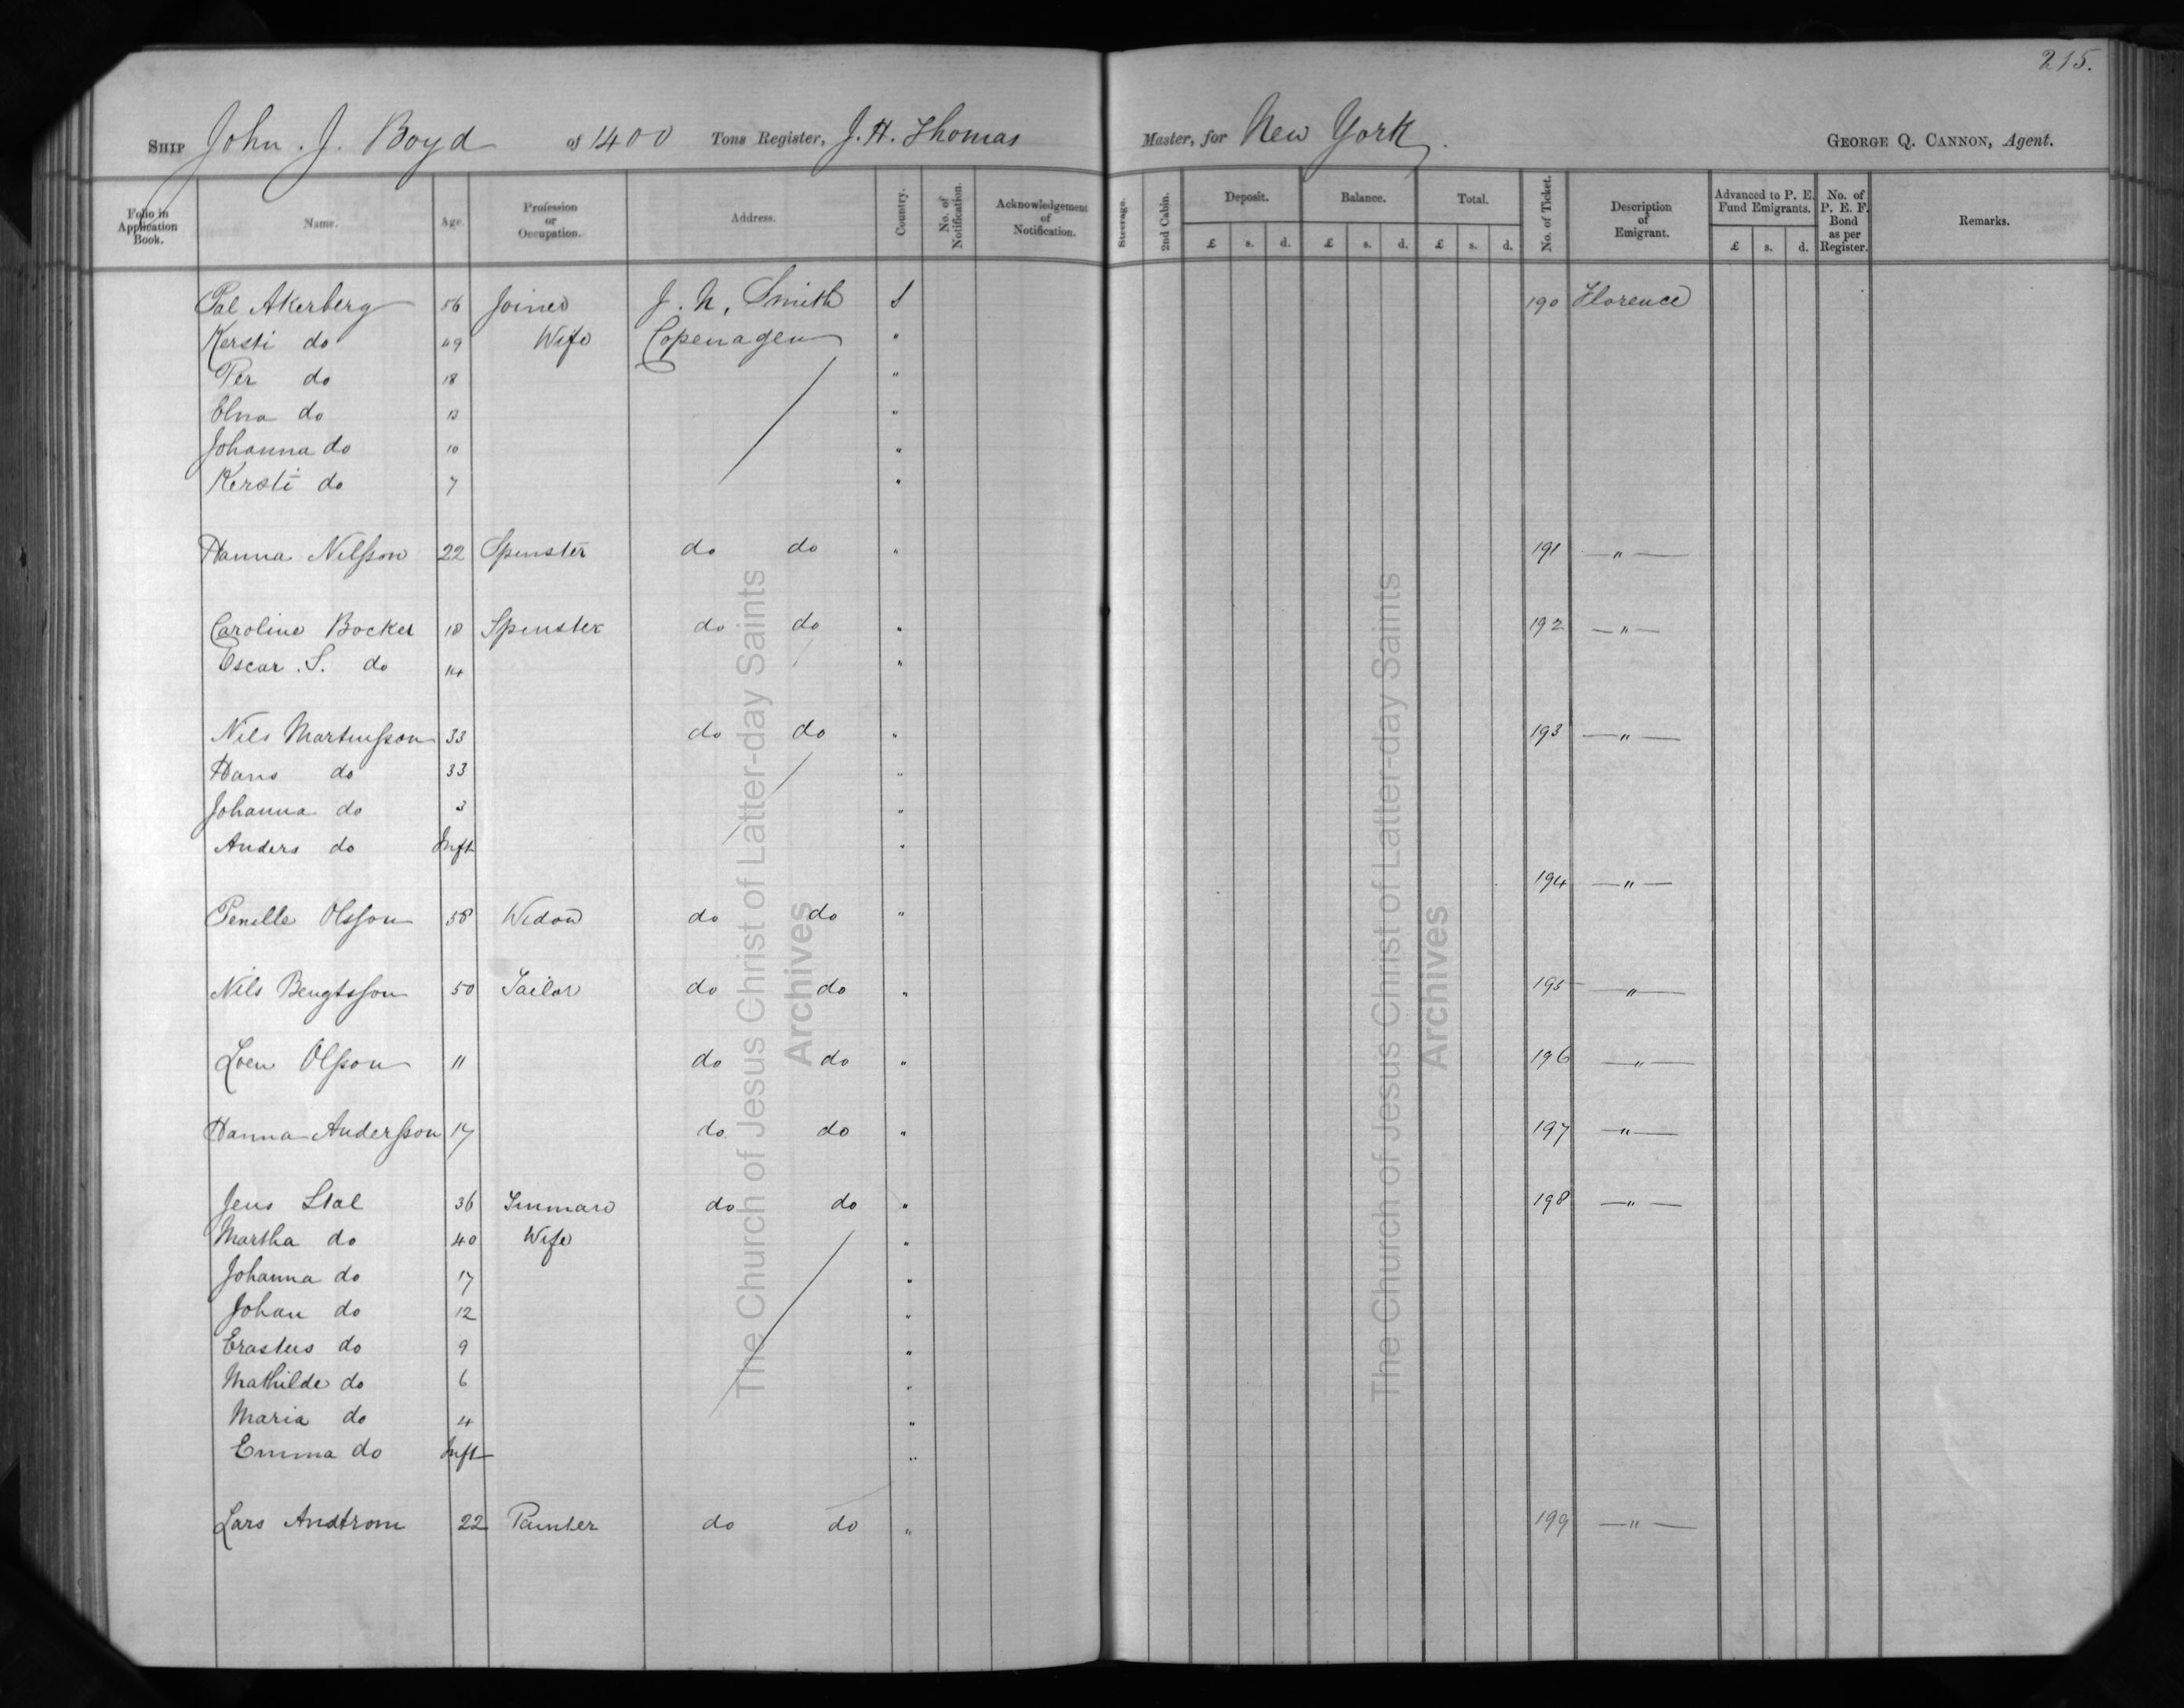 215.
SHIP John. J. Boyd of 1400 Tons Register, J. H. Thomas Master, for New York. GEORGE Q. CANNON, Agent.
Folio in Application Book. Name. Age. Profession or Occupation. Address. Country. No. of Notification. Acknowledgement of Notification. Steerage. 2nd Cabin. Deposit. £ s. d. Balance. £ s. d. Total. £ s. d. No. of Ticket. Description of Emigrant. Advanced to P. E. Fund Emigrants. £ s. d. No. of P. E. F. Bond as per Register. Remarks.
Pal Akerberg 56 Joiner J. N. Smith S 190 Florence
Kersti do 49 Wife Copenagen "
Per do 18 "
Elna do 13 "
Johanna do 10 "
Kersti do 7 "
Hanna Nilsson 22 Spinster do do " 191 — " —
Caroline Bocker 18 Spinster do do " 192 — " —
Oscar. S. do 14 "
Nils Martinsson 33 do do " 193 — " —
Hans do 33 "
Johanna do 3 "
Anders do Inft "
194 — " —
Penille Olsson 58 Widow do do "
Nils Bengtsson 50 Tailor do do " 195 — " —
Olsson 11 do do " 196 — " —
Hanna Andersson 17 do do " 197 — " —
Jens Stal 36 do do " 198 — " —
Martha do 40 Wife "
Johanna do 17 "
Johan do 12 "
Erastus do 9 "
Mathilde do 6 "
Maria do 4 "
Emma do Inft "
Lars Andtrom 22 Painter do do " 199 — " —
The Church of Jesus Christ of Latter-day Saints
Archives
The Church of Jesus Christ of Latter-day Saints
Archives